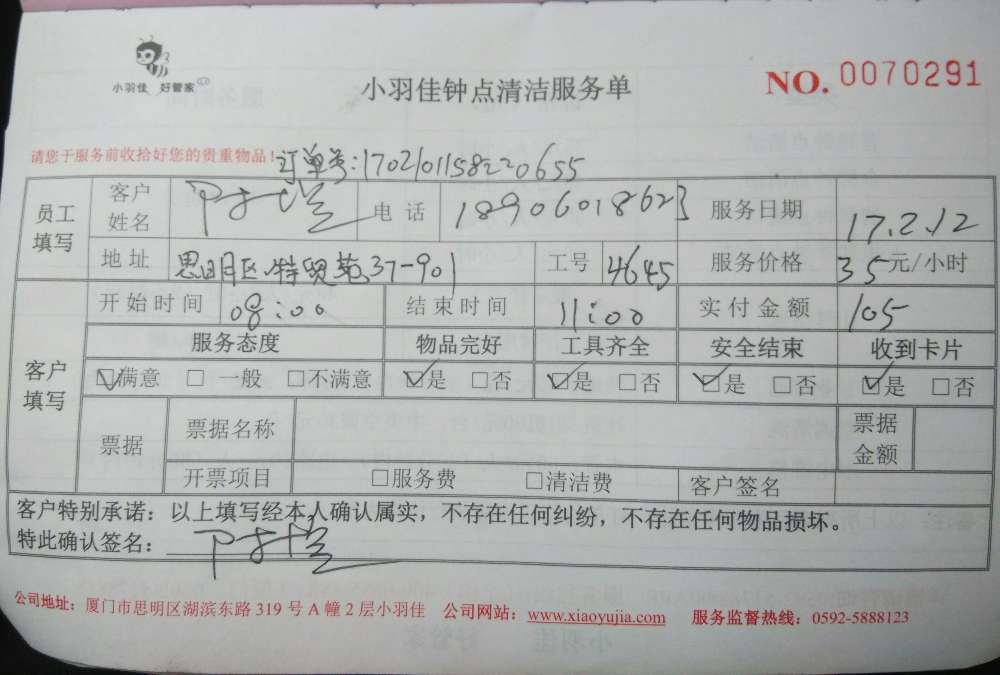 小羽佳 好管家
小羽佳钟点清洁服务单
NO. 0070291
请您于服务前收拾好您的贵重物品!
订单号:1702101158220655
员工填写 客户姓名 电话 18906018623 服务日期 17.2.12
地址 思明区特贸苑37-901 工号 4645 服务价格 35元/小时
客户填写 开始时间 08:00 结束时间 11:00 实付金额 105
服务态度 物品完好 工具齐全 安全结束 收到卡片
☑满意 □一般 □不满意 ☑是 □否 ☑是 □否 ☑是 □否 ☑是 □否
票据 票据名称 票据金额
开票项目 □服务费 □清洁费 客户签名
客户特别承诺:以上填写经本人确认属实,不存在任何纠纷,不存在任何物品损坏。
特此确认签名:
公司地址:厦门市思明区湖滨东路 319 号 A 幢 2 层小羽佳 公司网站:www.xiaoyujia.com 服务监督热线:0592-5888123